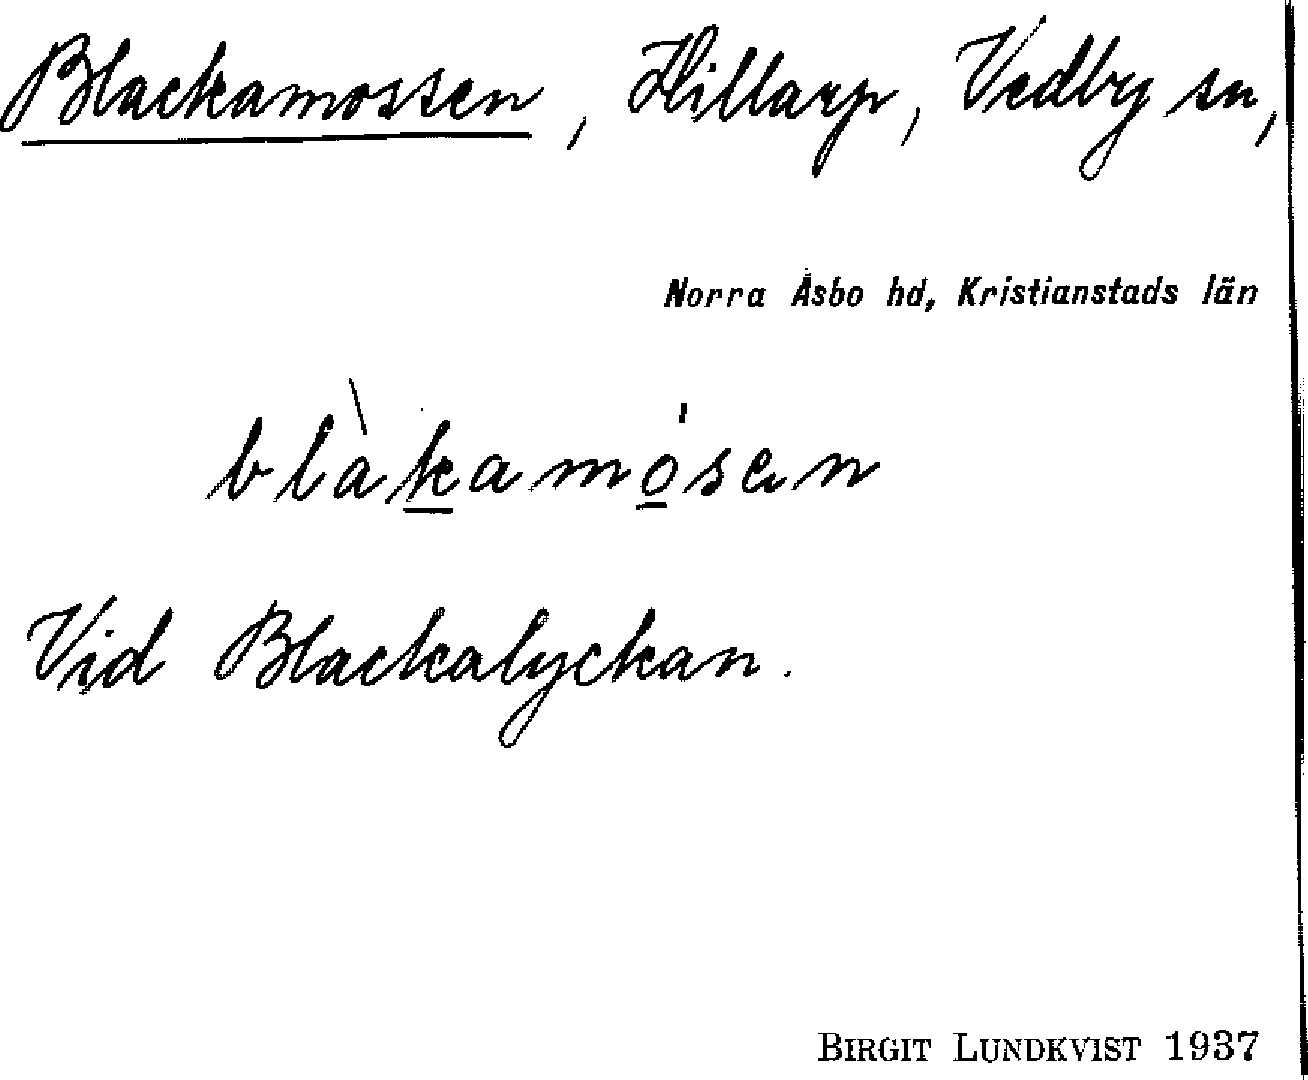 Blackamossen, Hillarp, Vedby sn,
Norra Åsbo hd, Kristianstads län
blàkamósen
Vid Blackalyckan.
BIRGIT LUNDKVIST 1937